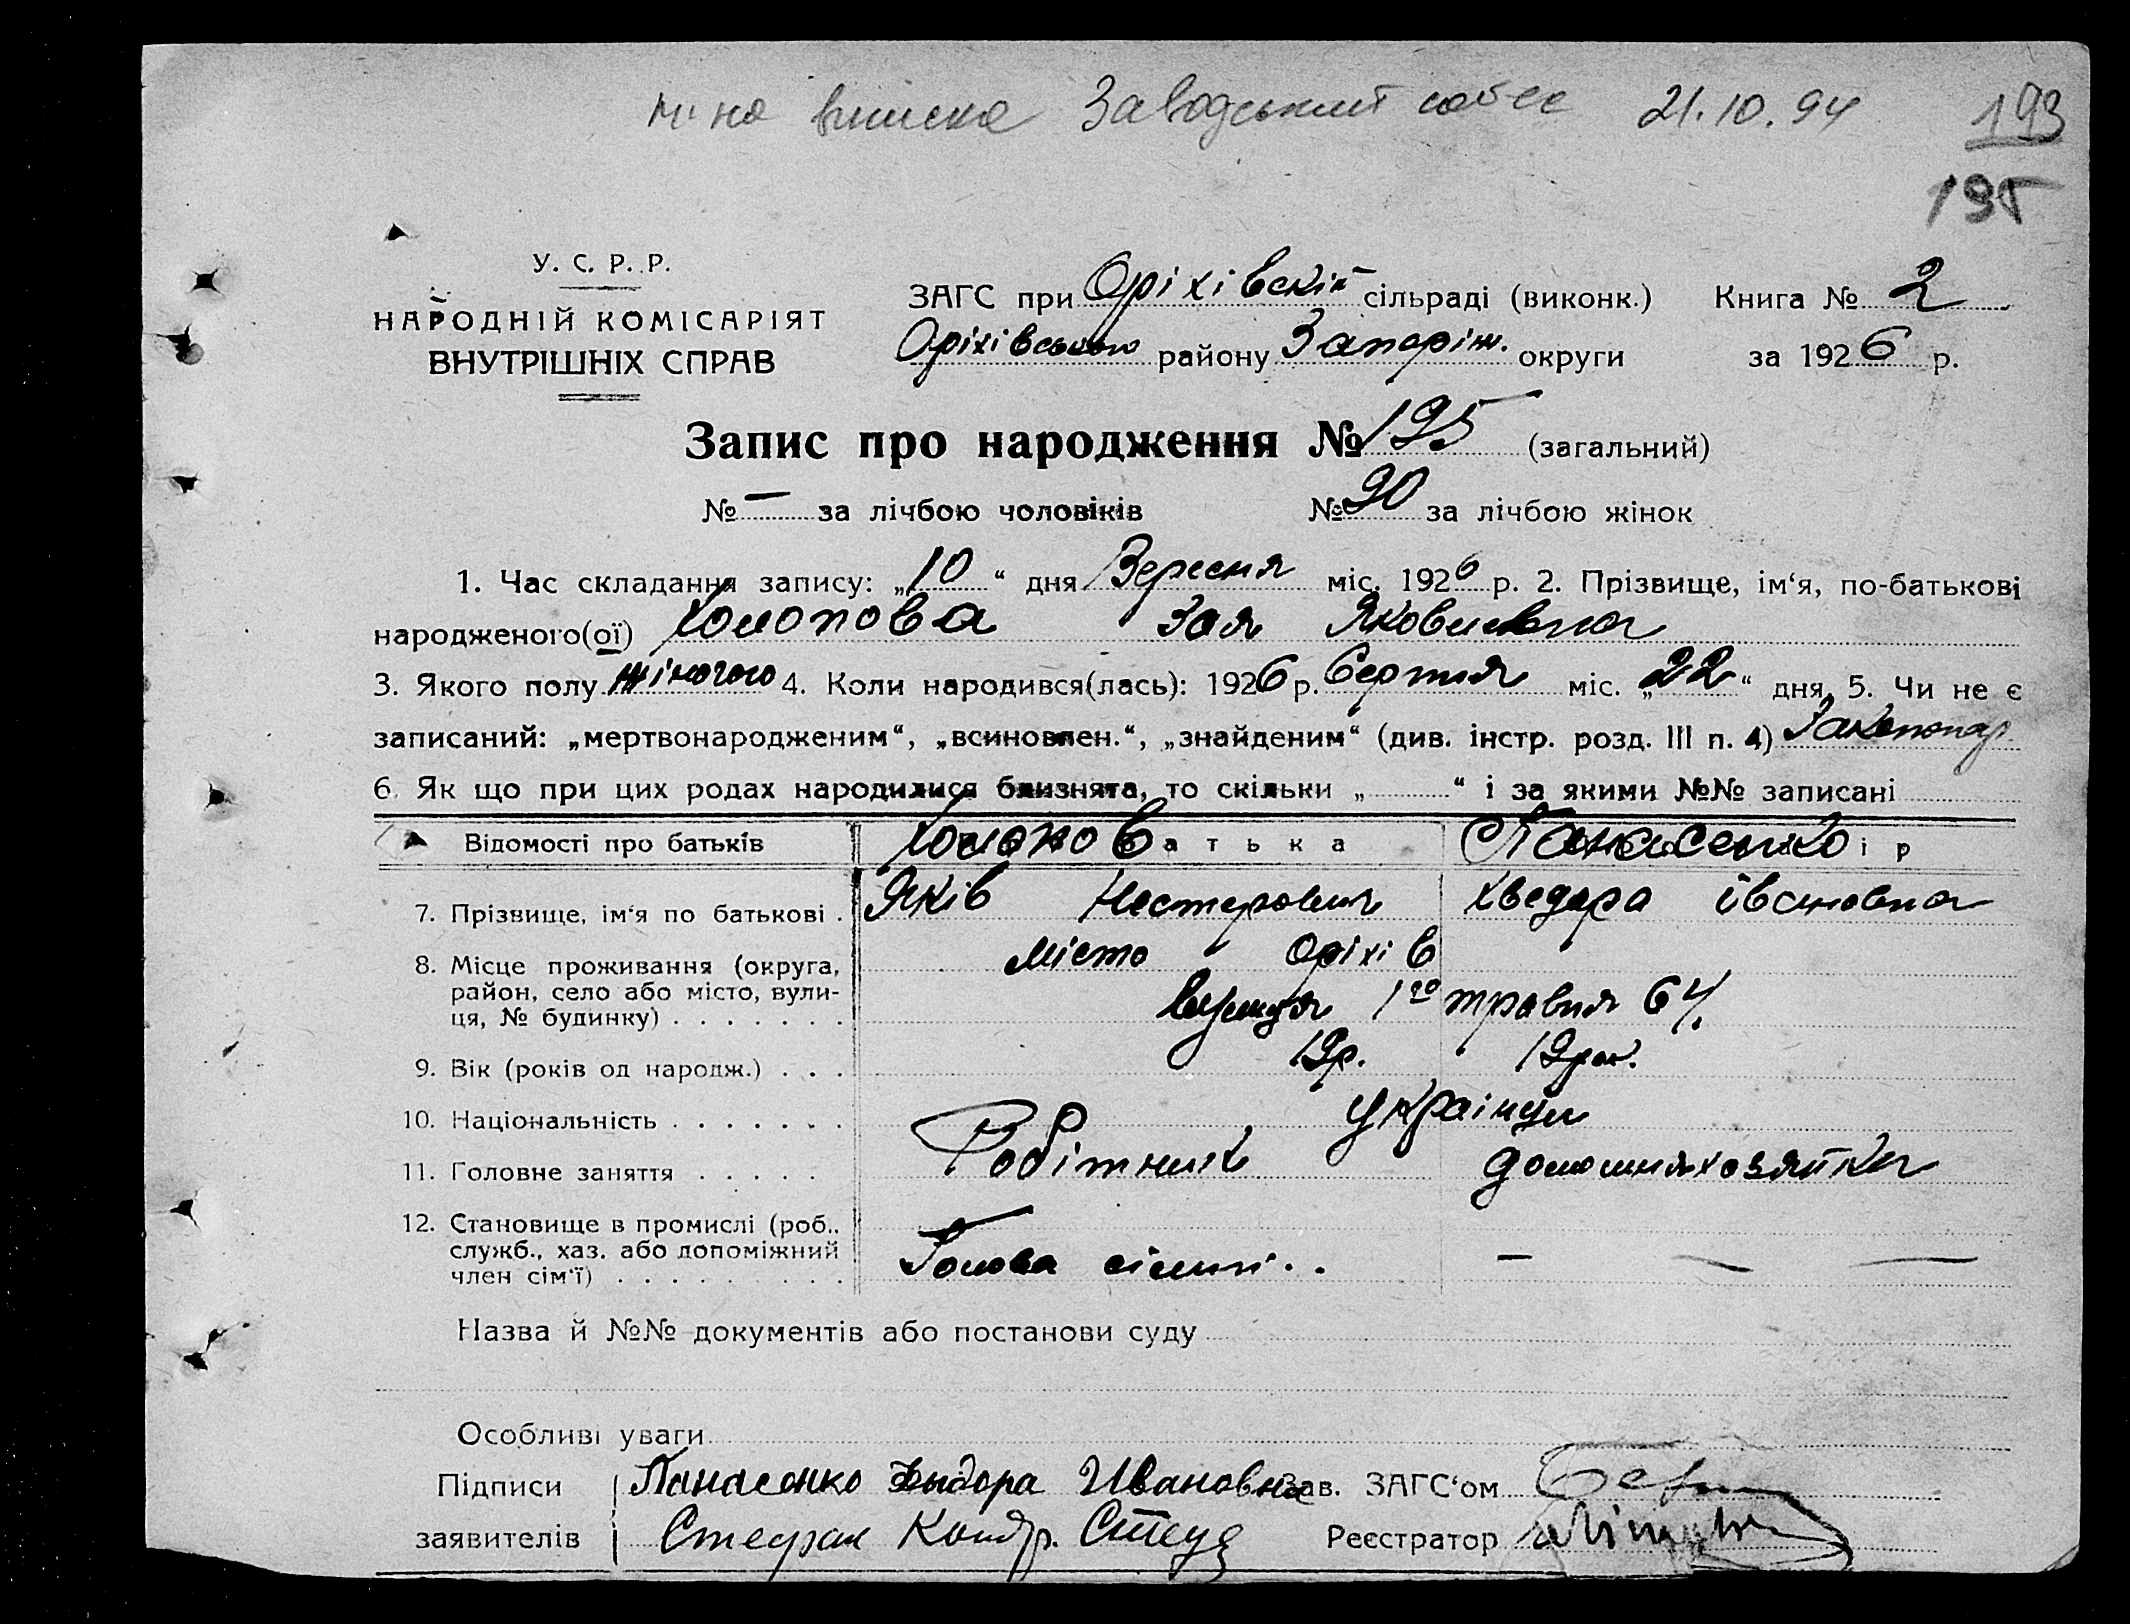 виписка Заводський собес 21.10.94 193
195
У. С. Р. Р.
НАРОДНІЙ КОМІСАРІЯТ
ВНУТРІШНІХ СПРАВ
ЗАГС при Оріхівскій сільраді (виконк.) Книга № 2
Оріхівського району Запоріж. округи за 1926 р.
Запис про народження № 195 (загальний)
№ — за лічбою чоловіків № 90 за лічбою жінок
1. Час складання запису: „10“ дня Вересня міс. 1926 р. 2. Прізвище, ім‘я, по-батькові
народженого(ої) Холопова Зоя Яковлевна
3. Якого полу жіночого 4. Коли народився(лась): 1926 р. Серпня міс. „22“ дня, 5. Чи не є
записаний: „мертвонародженим“, „всиновлен.“, „знайденим“ (див. інстр. розд. III п. 4)
6. Як що при цих родах народилися близнята, то скільки „ “ і за якими №№ записані
Відомості про батьків Холопов Батька Панасенко ір
7. Прізвище, ім‘я по батькові . Яків Нестерович Хведора Івановна
8. Місце проживання (округа, місто Оріхів
район, село або місто, вули-
ця, № будинку) . . . . . . . вулиця 1го травня 64.
9. Вік (років од народж.) . . . 19р. 19рок.
10. Національність . . . . . . . українци
11. Головне заняття . . . . . Робітник домошняхозяйка
12. Становище в промислі (роб.,
служб., хаз. або допоміжний
член сім‘ї) . . . . . . . . . Голова сімпї.. — — —
Назва й №№ документів або постанови суду
Особливі уваги
Підписи Панасенко Фыдора Ивановна Зав. ЗАГС‘ом
заявителів Стефан Кондр. Реєстратор